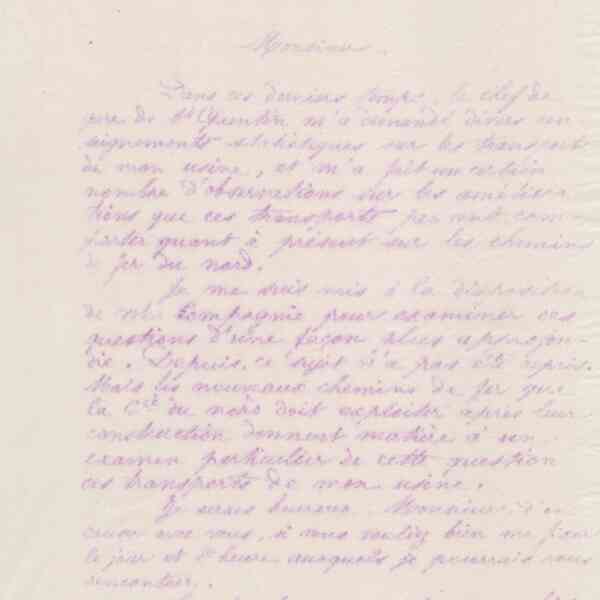 Monsieur
Dans ces derniers temps, le chef de
gare de St Quentin m'a demandé divers ren-
seignements statistiques sur les transports
de mon usine, et m'a fait un certain
nombre d'observations sur les améliora-
tions que ces transports peuvent com-
porter quant à présent sur les chemins
de fer du nord.
Je me suis mis à la disposition
de la Compagnie pour examiner ces
questions d'une façon plus approfon-
die. Depuis, ce sujet n'a pas été repris.
Mais les nouveaux chemins de fer que
la Cie du nord doit exploiter après leur
construction donnent matière à un
examen particulier de cette question
des transports de mon usine.
Je serais heureux, Monsieur, d'en
causer avec vous, si vous vouliez bien me fixer
le jour et l'heure auxquels je pourrais vous
rencontrer.